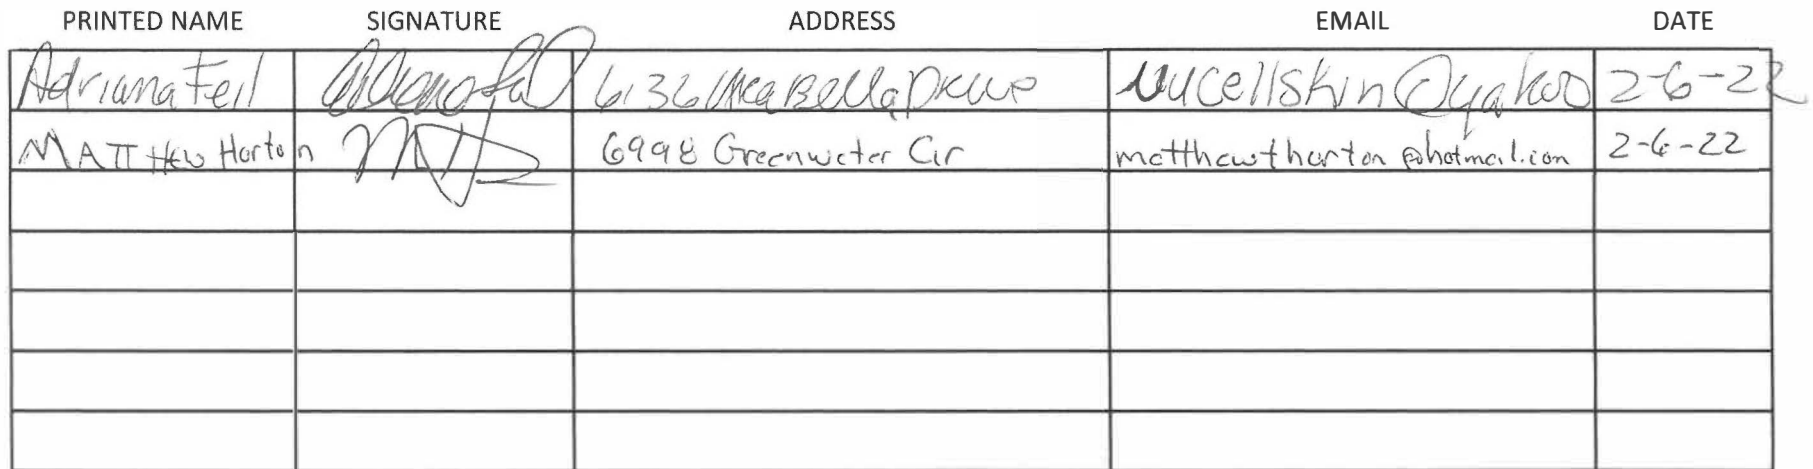 PRINTED NAME SIGNATURE ADDRESS EMAIL DATE
Adriana Feil 6136 Bella nucellskin@yahoo 2-6-22
MATTHew Horton 6998 Greenwater Cir matthewthorton@hotmail.com 2-6-22